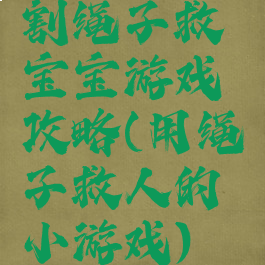 割绳子救
宝宝游戏
攻略(用绳
子救人的
小游戏)